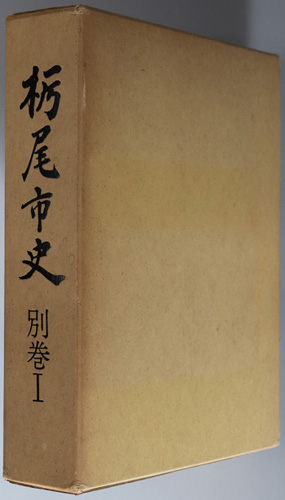 栃尾市史
別巻Ⅰ